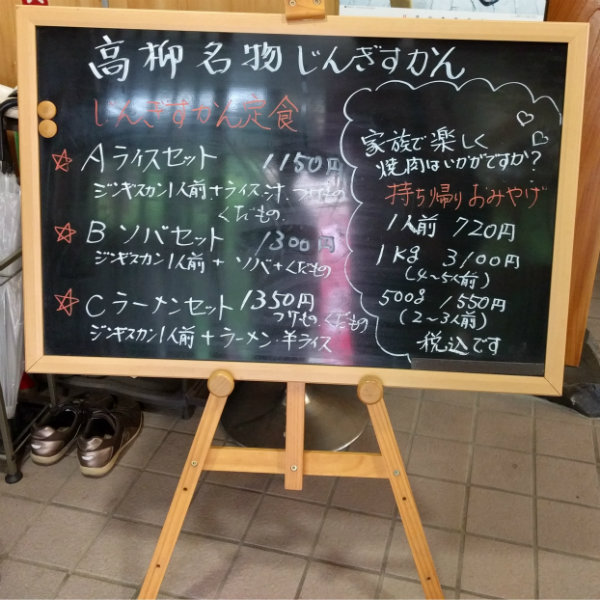 高柳名物じんぎすかん
じんぎすかん定食
☆Aライスセット 1150円
ジンギスカン1人前+ライス・汁・つけもの
くだもの
☆Bソバセット 1300円
ジンギスカン1人前+ソバ+くだもの
☆Cラーメンセット 1350円
つけもの、くだもの
ジンギスカン1人前+ラーメン・半ライス
家族で楽しく
焼肉はいかがですか?
持ち帰りおみやげ
1人前 720円
1kg 3100円
(4~5人前)
500g 1550円
(2~3人前)
税込です